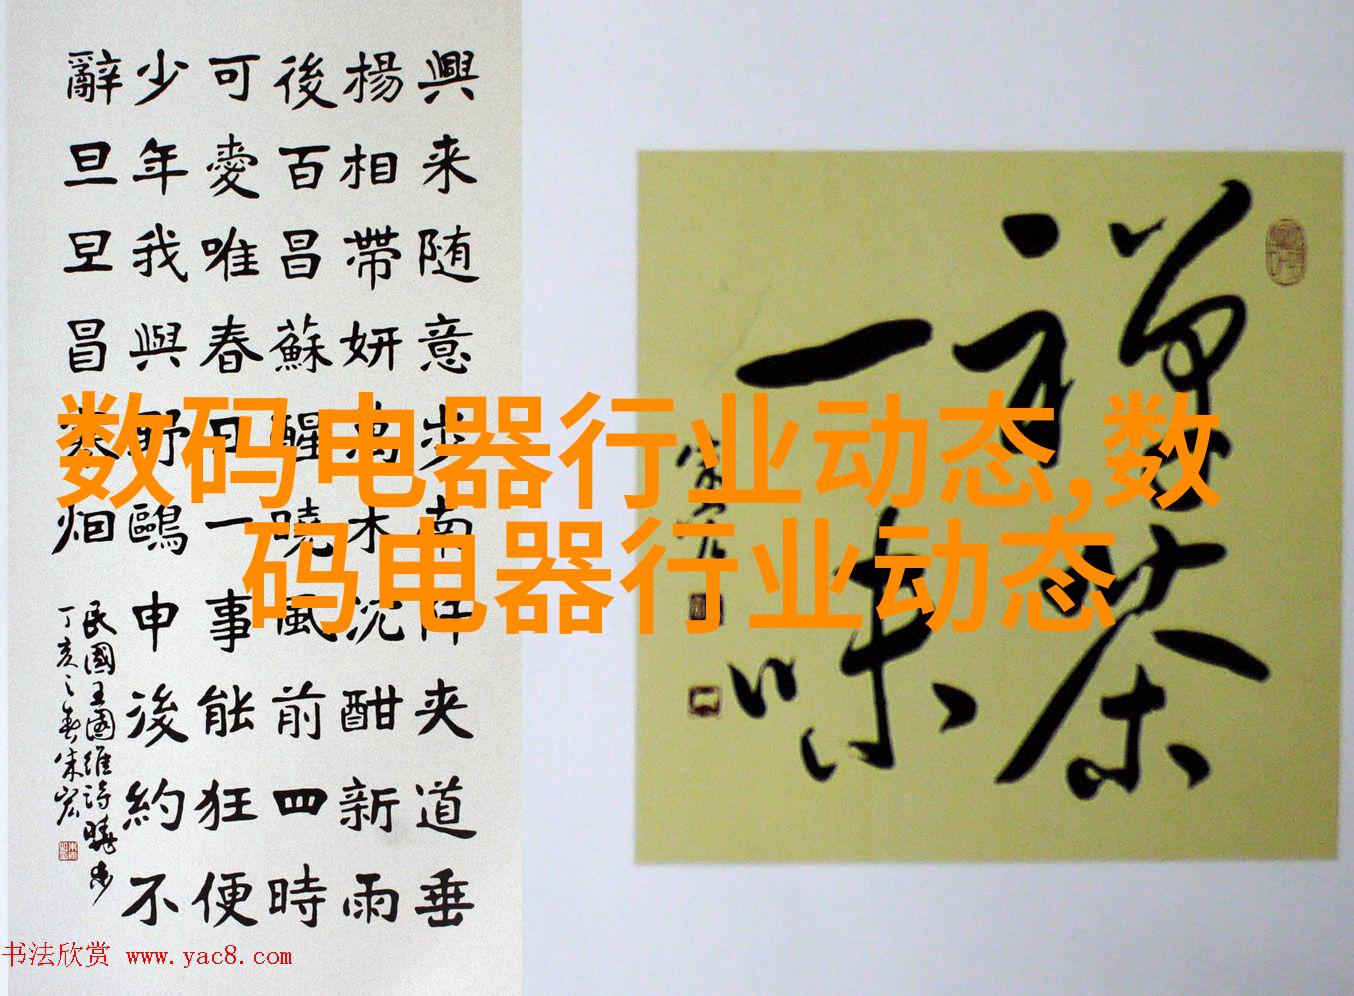 興来随意步南阡夹道垂
楊相帶妍萬木沈酣新雨
後百昌蘇醒曉風前四時
可愛唯春日一事能狂便
少年我與野鷗申後約不
辭旦旦冒寒烟
民國王國维詩曉步
丁亥之春朱宏
禅茶
一味
数码电器行业动态,数
码电器行业动态
书法欣赏 www.yac8.com